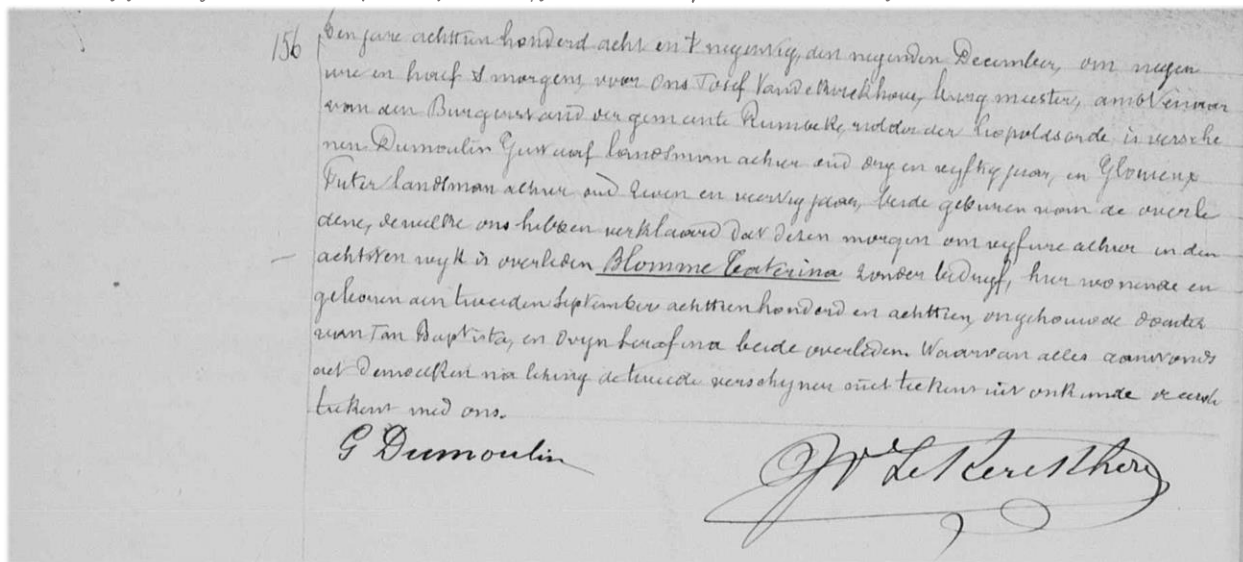 156 Den jare achttien honderd acht en t negentig, den negenden December, om negen
ure en half s morgens, voor Ons Josef Vandekerckhove, burgmeester, ambtenaar
van den Burgerstand der gemeente Rumbeke, ridder der Leopoldsorde, is versche
nen Dumoulin Gustaaf landsman alhier oud dry en vyftig jaar, en Glorieux
Pieter landsman alhier oud zeven en veertig jaar, beide geburen van de overle
dene, dewelke ons hebben verklaard dat dezen morgen om vyf ure alhier in den
achtsten wyk is overleden Blomme Caterina zonder bedryf, hier wonende en
geboren den tweeden September achttien honderd en achttien, ongehuwde dochter
van Jan Baptista, en Ovyn Serafina beide overleden. Waarvan alles aanstonds
act demelken na lezing de tweede verschyner niet teekent uit onkunde de eerste
teekent med ons.
G Dumoulin